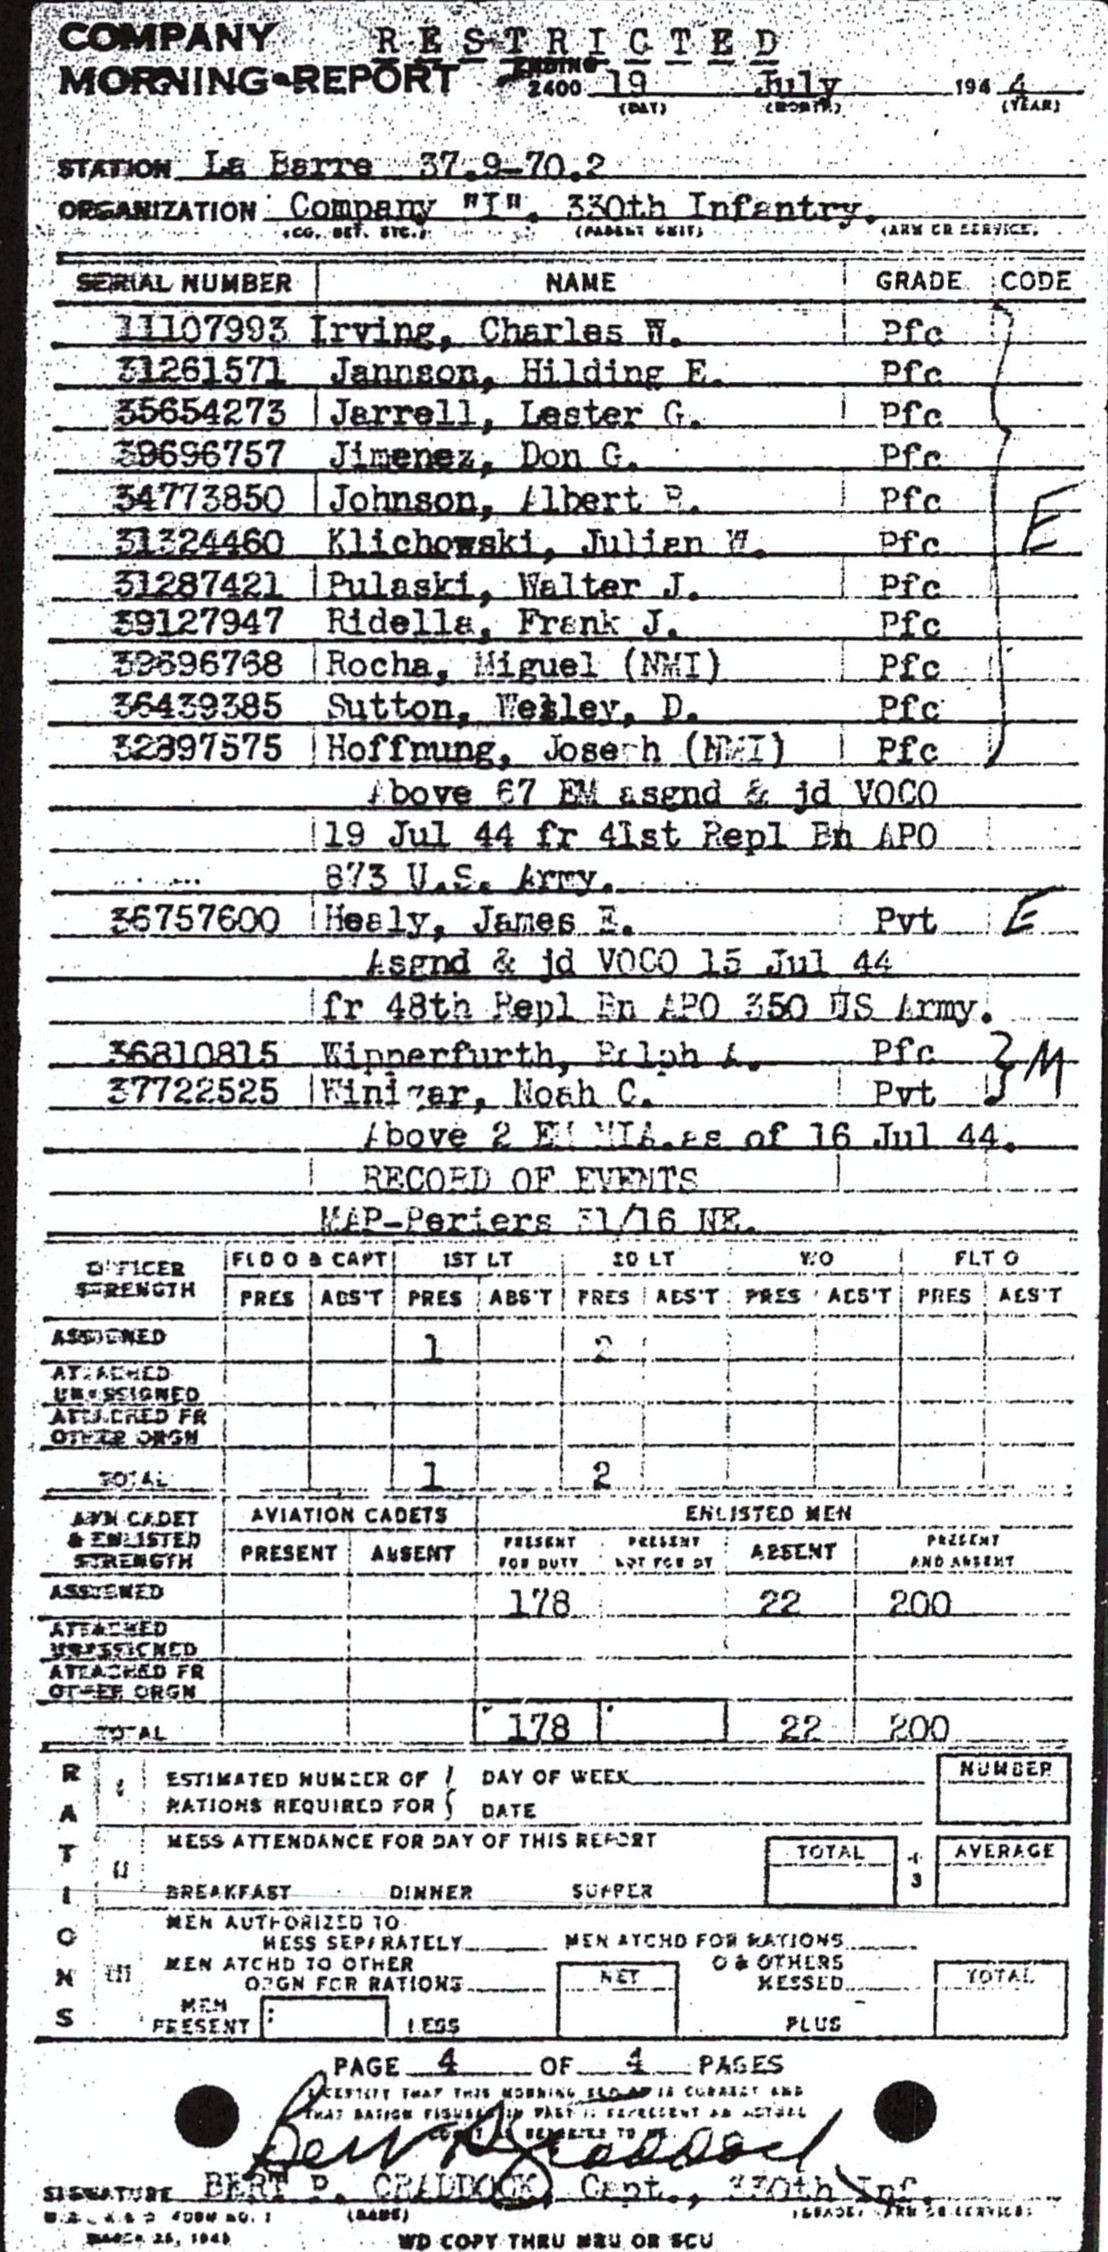 COMPANY RESTRICTED
MORNING REPORT ENDING 2400 19 July 194 4
(DAY) (MONTH) (YEAR)
STATION La Barre 37.9-70.2
ORGANIZATION Company "I". 330th Infantry.
(CO, DET, ETC.) (PARENT UNIT) (ARM OR SERVICE)
SERIAL NUMBER NAME GRADE CODE
11107993 Irving, Charles W. Pfc
31261571 Jannson, Hilding E. Pfc
35654273 Jarrell, Lester G. Pfc
39696757 Jimenez, Don G. Pfc
34773850 Johnson, Albert Pfc E
31324460 Klichowski, Julian W. Pfc
31287421 Pulaski, Walter J. Pfc
39127947 Ridella, Frank J. Pfc
Rocha, Miguel (NMI) Pfc
36439385 Sutton, Wesley, D. Pfc
32897575 Hoffnung, Joseph (NMI) Pfc
Above 67 EM asgnd & jd VOCO
19 Jul 44 fr 41st Repl Bn APO
873 U.S. Army.
36757600 Healy, James E. Pvt E
Asgnd & jd VOCO 15 Jul 44
fr 48th Repl Bn APO 350 US Army.
36810815 Wipperfurth, Ralph A. Pfc } M
37722525 Noah C. Pvt
Above 2 EM MIA as of 16 Jul 44.
RECORD OF EVENTS
MAP-Periers 31/16 NE.
OFFICER STRENGTH FLD O & CAPT 1ST LT 2D LT WO FLT O
PRES ABS'T PRES ABS'T PRES ABS'T PRES ABS'T PRES ABS'T
ASSIGNED 1 2
ATTACHED UNASSIGNED
ATTACHED FR OTHER ORGN
TOTAL 1 2
AVN CADET & ENLISTED STRENGTH AVIATION CADETS ENLISTED MEN
PRESENT ABSENT PRESENT FOR DUTY PRESENT NOT FOR DY ABSENT PRESENT AND ABSENT
ASSIGNED 178 22 200
ATTACHED UNASSIGNED
ATTACHED FR OTHER ORGN
TOTAL 178 22 200
RATIONS
I ESTIMATED NUMBER OF RATIONS REQUIRED FOR { DAY OF WEEK NUMBER
DATE
II MESS ATTENDANCE FOR DAY OF THIS REPORT TOTAL ÷ 3 AVERAGE
BREAKFAST DINNER SUPPER
III MEN AUTHORIZED TO MESS SEPARATELY MEN ATCHD FOR RATIONS
MEN ATCHD TO OTHER ORGN FOR RATIONS NET O & OTHERS MESSED TOTAL
MEN PRESENT LESS PLUS
PAGE 4 OF 4 PAGES
I CERTIFY THAT THIS MORNING REPORT IS CORRECT AND
THAT RATION FIGURES IN PART II REPRESENT AN ACTUAL
Bert P. Craddock
SIGNATURE BERT P. CRADDOCK, Capt., 330th Inf.
(NAME) (GRADE) (ARM OR SERVICE)
W.D., A.G.O. FORM NO. 1
MARCH 25, 1943
WD COPY THRU MRU OR SCU